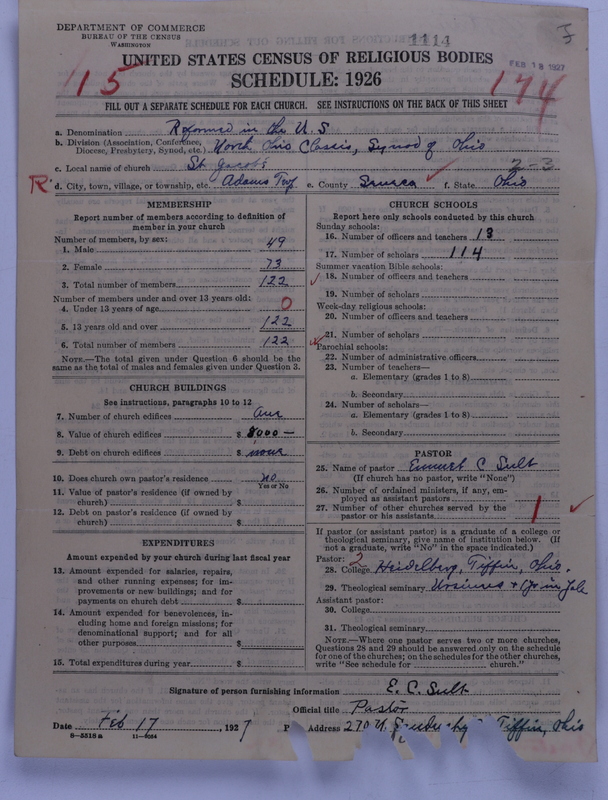 DEPARTMENT OF COMMERCE
BUREAU OF THE CENSUS
WASHINGTON
1114
FEB 18 1927
UNITED STATES CENSUS OF RELIGIOUS BODIES
115
SCHEDULE: 1926
174
FILL OUT A SEPARATE SCHEDULE FOR EACH CHURCH. SEE INSTRUCTIONS ON THE BACK OF THIS SHEET
a. Denomination Reformed in the U.S
b. Division (Association, Conference, Diocese, Presbytery, Synod, etc.) North Ohio Classis, Synod of Ohio
c. Local name of church St Jacobs 2-3
R d. City, town, village, or township, etc. Adams Twp e. County Seneca f. State Ohio
MEMBERSHIP
Report number of members according to definition of
member in your church
Number of members, by sex:
1. Male 49
2. Female 73
3. Total number of members 122
Number of members under and over 13 years old:
4. Under 13 years of age 0
5. 13 years old and over 122
6. Total number of members 122
NOTE.—The total given under Question 6 should be
same as the total of males and females given under Question 3.
CHURCH BUILDINGS
See instructions, paragraphs 10 to 12
7. Number of church edifices One
8. Value of church edifices $ 8000 —
9. Debt on church edifices $ none
10. Does church own pastor's residence? no
Yes or No
11. Value of pastor's residence (if owned by
church) $
12. Debt on pastor's residence (if owned by
church) $
EXPENDITURES
Amount expended by your church during last fiscal year
13. Amount expended for salaries, repairs,
and other running expenses; for im-
provements or new buildings; and for
payments on church debt $
14. Amount expended for benevolences, in-
cluding home and foreign missions; for
denominational support; and for all
other purposes $
15. Total expenditures during year $
CHURCH SCHOOLS
Report here only schools conducted by this church
Sunday schools:
16. Number of officers and teachers 13
17. Number of scholars 114
Summer vacation Bible schools:
18. Number of officers and teachers
19. Number of scholars
Week-day religious schools:
20. Number of officers and teachers
21. Number of scholars
Parochial schools:
22. Number of administrative officers
23. Number of teachers—
a. Elementary (grades 1 to 8)
b. Secondary
24. Number of scholars—
a. Elementary (grades 1 to 8)
b. Secondary
PASTOR
25. Name of pastor Emmet C Sult
(If church has no pastor, write "None")
26. Number of ordained ministers, if any, em-
ployed as assistant pastors
27. Number of other churches served by the
pastor or his assistants 1
If pastor (or assistant pastor) is a graduate of a college or
theological seminary, give name of institution below. (If
not a graduate, write "No" in the space indicated.)
Pastor: 2
28. College Heidelberg, Tiffin, Ohio.
29. Theological seminary Ursinus + 1 yr in Yale
Assistant pastor:
30. College
31. Theological seminary
NOTE.—Where one pastor serves two or more churches,
Questions 28 and 29 should be answered only on the schedule
for one of the churches; on the schedules for the other churches,
write "See schedule for church."
Signature of person furnishing information E. C. Sult
Official title Pastor
Date Feb 17, 1927 P Address 270 N. Sandusky Tiffin, Ohio
8-5518 a 11-9084